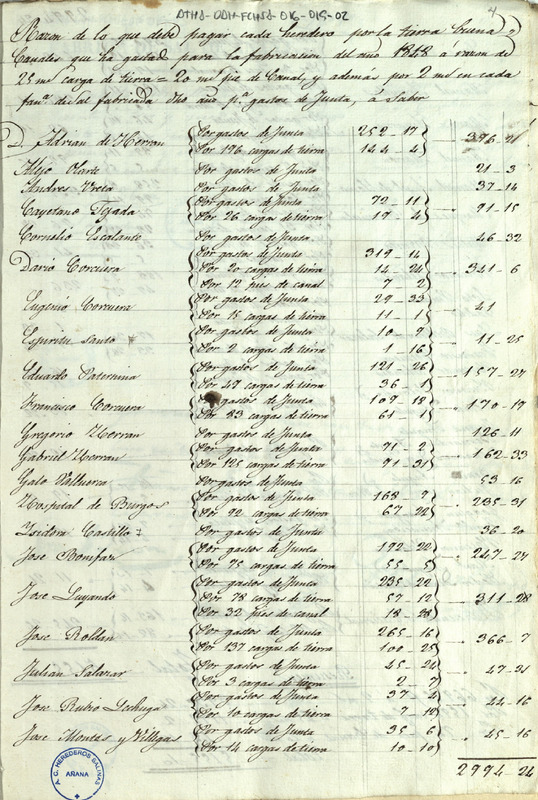 ATHA-DAH-FCHSA-016-015-02
4
Razon de lo que debe pagar cada heredero por la tierra buena y
Canales que ha gastado para la fabricacion del año 1848 á razon de
25 mrs carga de tierra = 20 mrs pie de Canal, y además por 2 mrs en cada
fanª de sal fabricada dho año pª gastos de Junta, á saber
D. Adrian de Herran Por gastos de Junta 252 - 17
Por 196 cargas de tierra 144 - 4 376 - 21
Alejo Olarte Por gastos de Junta 21 - 3
Andres Ureta Por gastos de Junta 37 - 14
Cayetano Tejada Por gastos de Junta 72 - 11
Por 26 cargas de tierra 19 - 4 91 - 15
Cornelio Escalante Por gastos de Junta 46 - 32
Dario Corcuera Por gastos de Junta 319 - 14
Por 20 cargas de tierra 14 - 24 341 - 6
Por 12 pies de canal 7 - 2
Eugenio Corcuera Por gastos de Junta 29 - 33
Por 15 cargas de tierra 11 - 1 41
Espiritu Santo Por gastos de Junta 10 - 9
Por 2 cargas de tierra 1 - 16 11 - 25
Eduardo Paternina Por gastos de Junta 121 - 26
Por 49 cargas de tierra 36 - 1 157 - 27
Francisco Corcuera Por gastos de Junta 109 - 18
Por 83 cargas de tierra 61 - 1 170 - 19
Gregorio Herran Por gastos de Junta 126 - 11
Gabriel Herran Por gastos de Junta 71 - 2
Por 125 cargas de tierra 91 - 31 162 - 33
Galo Valluerca Por gastos de Junta 53 - 16
Hospital de Burgos Por gastos de Junta 168 - 9
Por 92 cargas de tierra 67 - 22 235 - 31
Ysidora Castillo Por gastos de Junta 36 - 20
Jose Bonifaz Por gastos de Junta 192 - 22
Por 75 cargas de tierra 55 - 5 247 - 27
Jose Luyando Por gastos de Junta 235 - 22
Por 78 cargas de tierra 57 - 12 311 - 28
Por 32 pies de canal 18 - 28
Jose Roldan Por gastos de Junta 265 - 16
Por 137 cargas de tierra 100 - 25 366 - 7
Julian Salazar Por gastos de Junta 45 - 24
Por 3 cargas de tierra 2 - 7 47 - 31
Jose Rubio Por gastos de Junta 37 - 4
Por 10 cargas de tierra 7 - 12 44 - 16
Jose Montes y Villegas Por gastos de Junta 35 - 6
Por 14 cargas de tierra 10 - 10 45 - 16
2994 - 24
A. C. HEREDEROS SALINAS
AÑANA